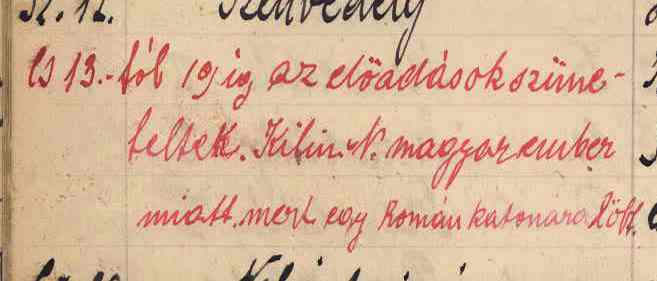 12. Szenvedély
Cs 13.-tól 19 ig az előadások szüne-
teltek. Kilin N. magyar ember
miatt. mert egy Román katonára lőtt.